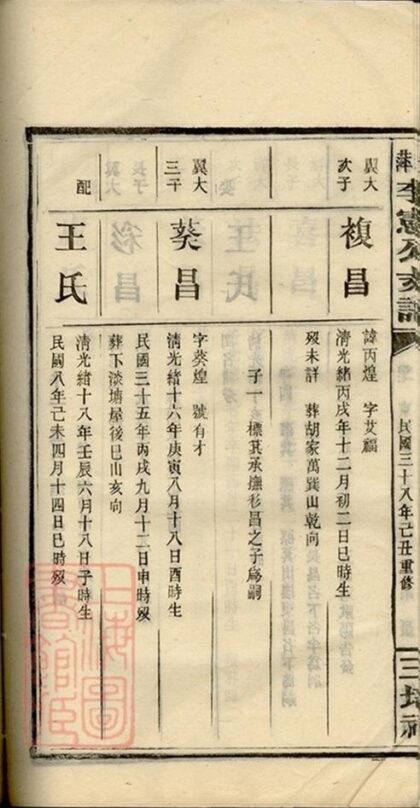 李憲公支譜
民國三十八年己丑重修
翼大
次子
複昌
諱丙煌 字艾福
清光緒丙戌年十二月初二日巳時生
歿未詳 葬胡家萬巽山乾向
子一 標萁承撫衫昌之子為嗣
翼大
三子
葵昌
字葵煌 號有才
清光緒十六年庚寅八月十八日酉時生
民國三十五年丙戌九月十二日申時歿
葬下淡塘屋後巳山亥向
配
王氏
清光緒十八年壬辰六月十八日子時生
民國八年己未四月十四日巳時歿
上海圖書館藏